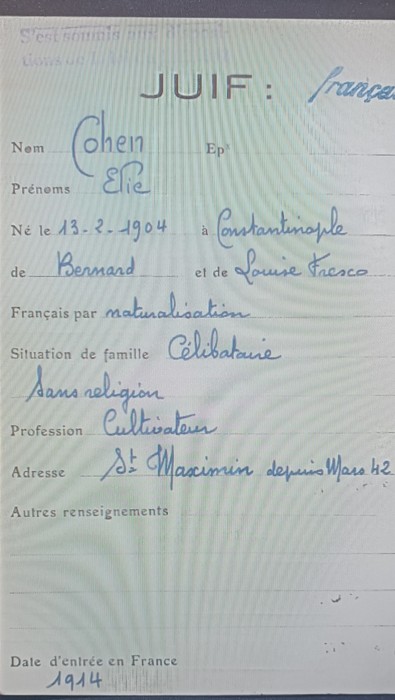 S'est soumis aux
JUIF : França
Nom Cohen Ep˟
Prénoms Elie
Né le 13-2-1904 à Constantinople
de Bernard et de Louise Fresco
Français par naturalisation
Situation de famille Célibataire
Sans religion
Profession Cultivateur
Adresse St Maximin depuis Mars 42
Autres renseignements
Date d'entrée en France
1914